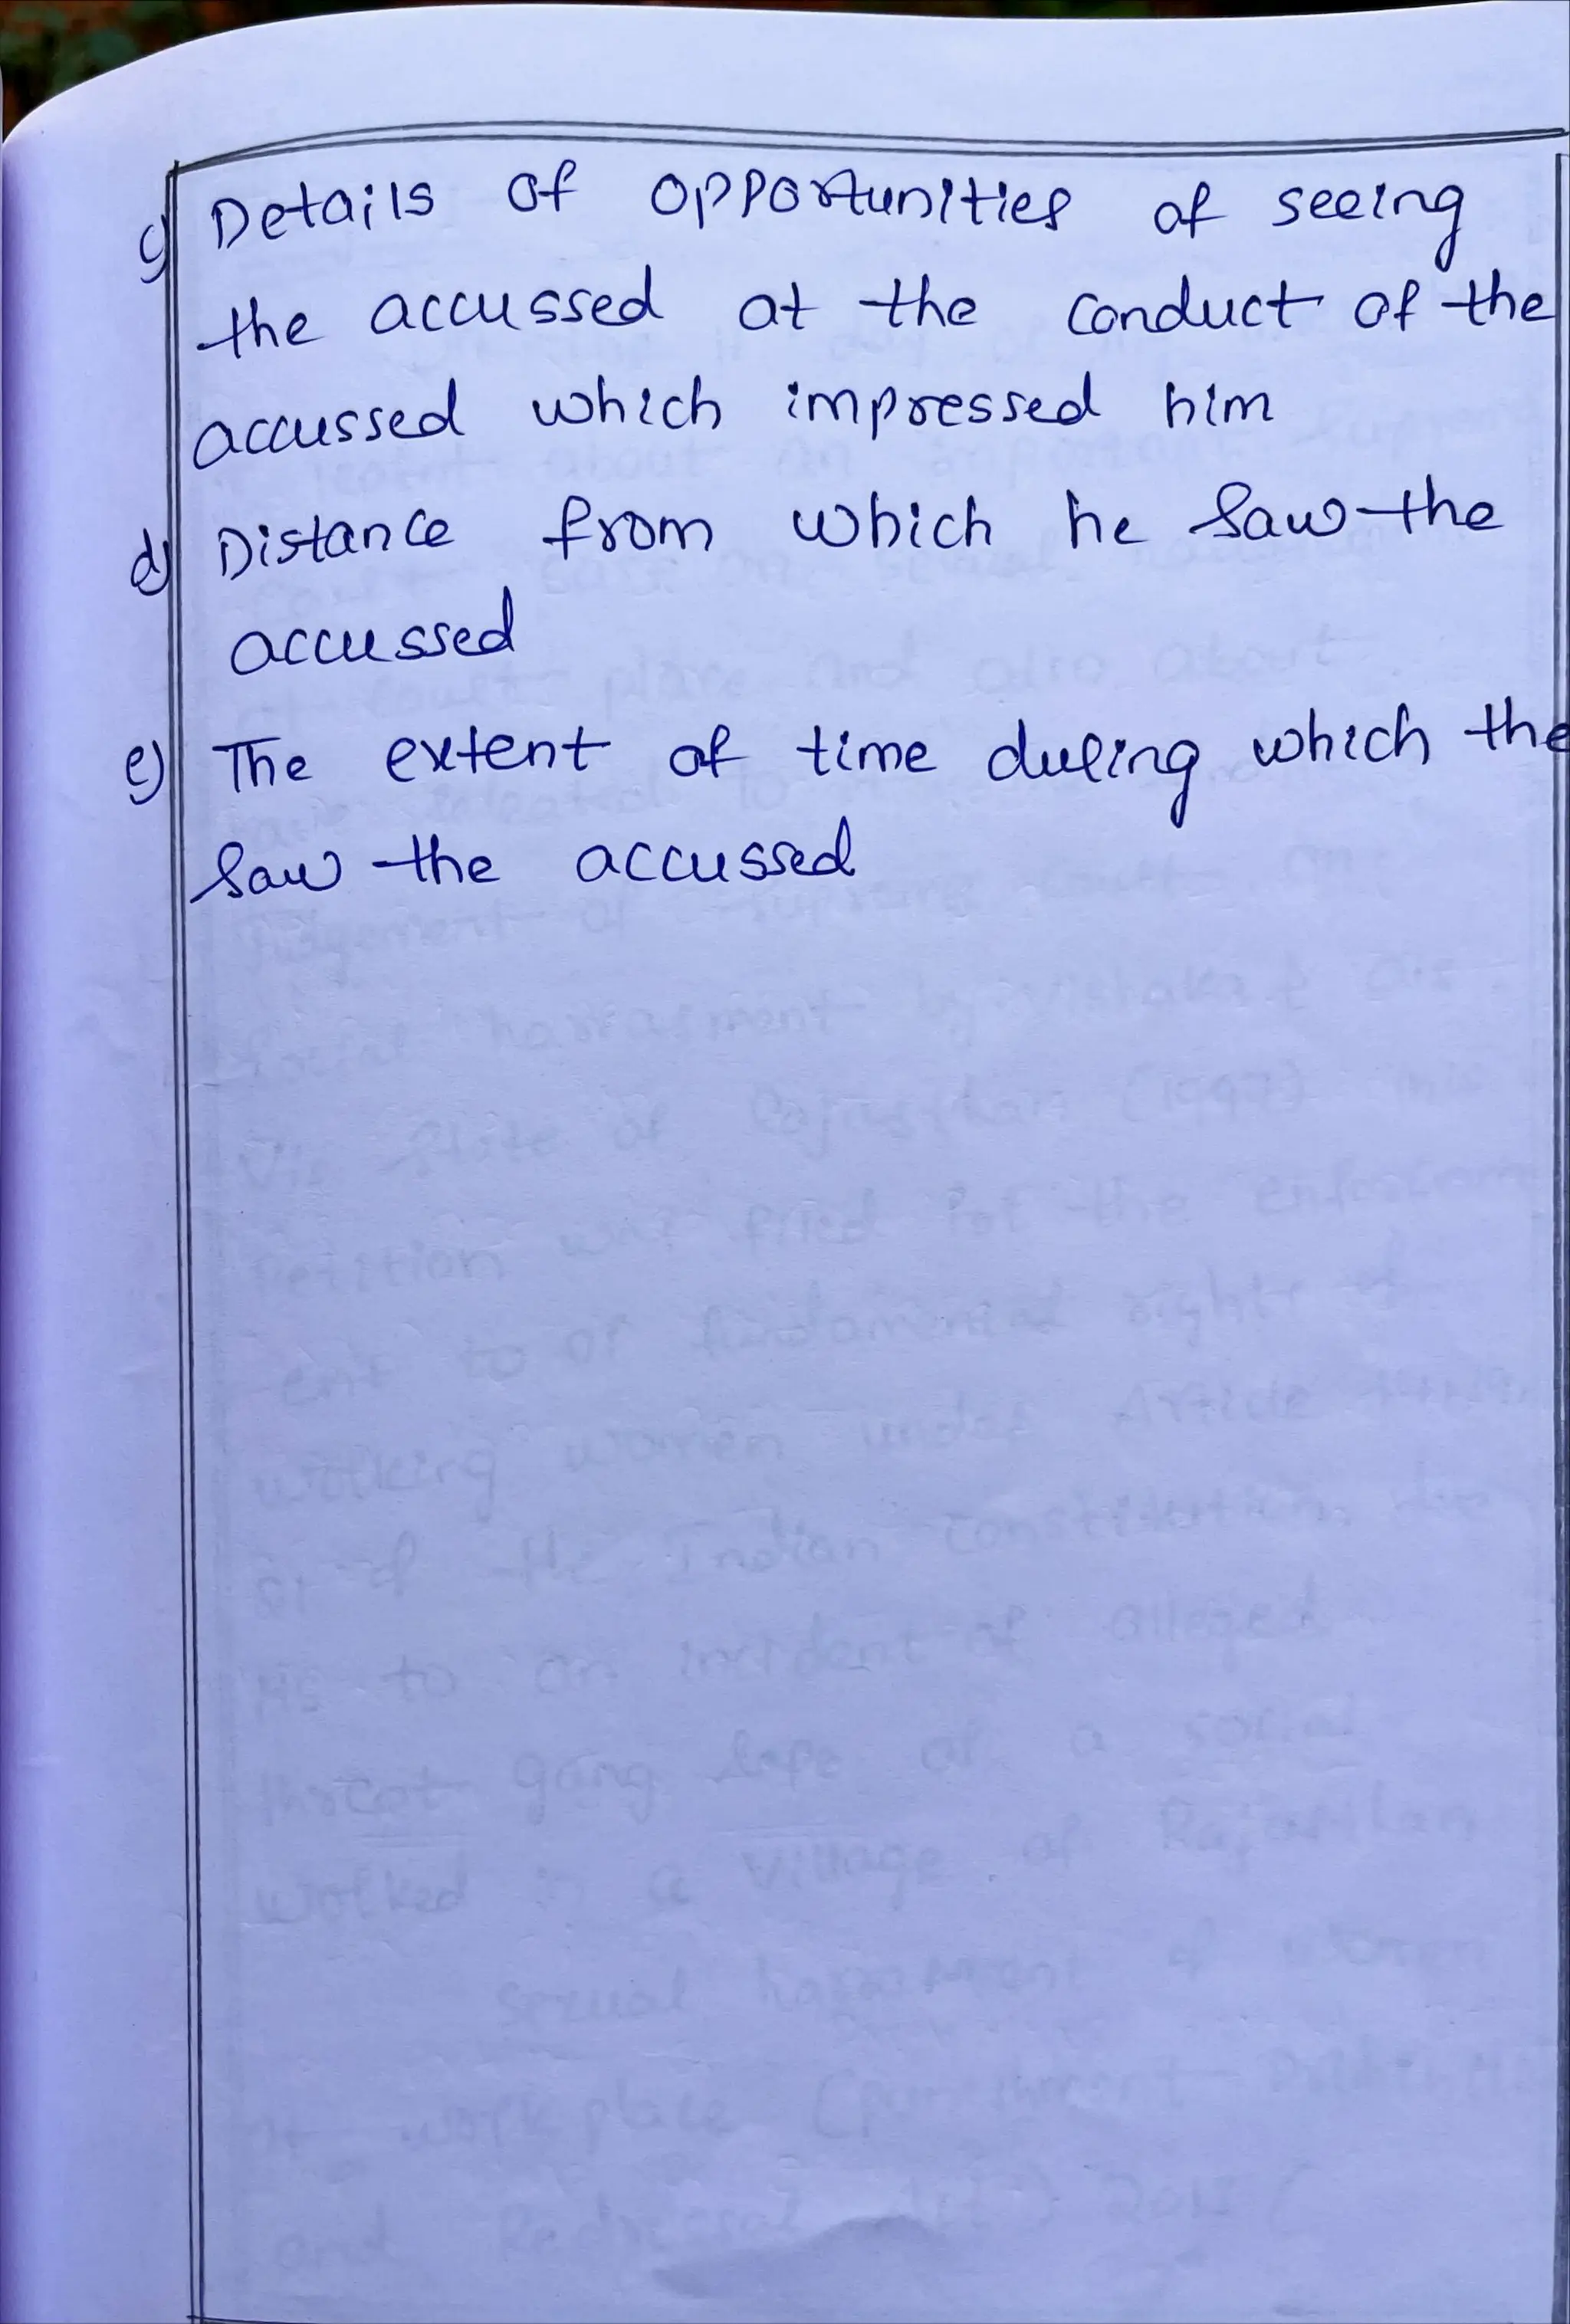 c) Details of opportunities of seeing
the accussed at the conduct of the
accussed which impressed him
d) Distance from which he saw the
accussed
e) The extent of time during which the
saw the accussed